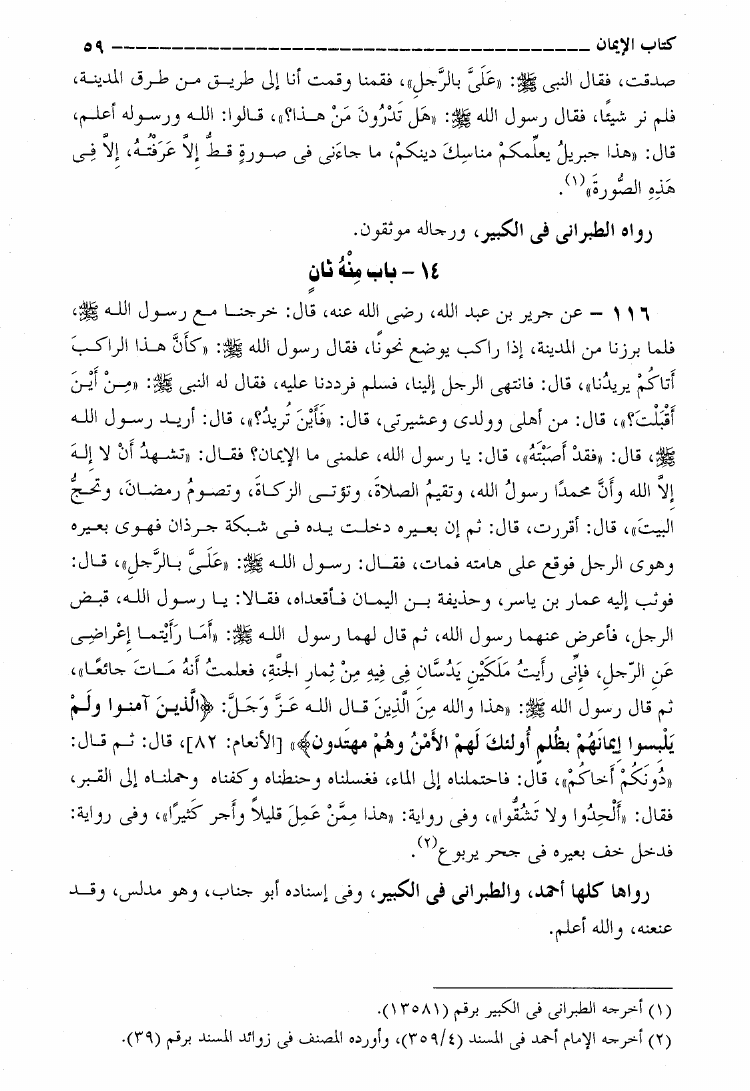 كتاب الإيمان ـــــــــــــــــــــــــــــــــــــــــــــــــــــــ ٥٩
صدقت، فقال النبى ﷺ: «عَلَىَّ بالرَّجلِ»، فقمنا وقمت أنا إلى طريق من طرق المدينة،
فلم نر شيئًا، فقال رسول الله ﷺ: «هَل تَدْرُونَ مَنْ هذا؟»، قالوا: الله ورسوله أعلم،
قال: «هذا جبريلُ يعلِّمكمْ مناسِكَ دينكمْ، ما جاءَنى فى صورةٍ قطُّ إلاَّ عَرَفْتُهُ، إلاَّ فِى
هَذِهِ الصُّورةَ»(١).
رواه الطبرانى فى الكبير، ورجاله موثقون.
١٤ - باب مِنْهُ ثانٍ
١١٦ - عن جرير بن عبد الله، رضى الله عنه، قال: خرجنا مع رسول الله ﷺ،
فلما برزنا من المدينة، إذا راكب يوضع نحونًا، فقال رسول الله ﷺ: «كأنَّ هذا الراكبَ
أتاكُمْ يريدُنا»، قال: فانتهى الرجل إلينا، فسلم فرددنا عليه، فقال له النبى ﷺ: «مِنْ أَيْنَ
أقْبَلْتَ؟»، قال: من أهلى وولدى وعشيرتى، قال: «فَأَيْنَ تُريدُ؟»، قال: أريد رسول الله
ﷺ، قال: «فقدْ أصَبْتَهُ»، قال: يا رسول الله، علمنى ما الإيمان؟ فقال: «تشهدُ أنْ لا إلهَ
إلاَّ الله وأنَّ محمدًا رسولُ الله، وتقيمُ الصلاةَ، وتؤتى الزكاةَ، وتصومُ رمضانَ، وتحجُّ
البيتَ»، قال: أقررت، قال: ثم إن بعيره دخلت يده فى شبكة جرذان فهوى بعيره
وهوى الرجل فوقع على هامته فمات، فقال: رسول الله ﷺ: «عَلَىَّ بالرَّجلِ»، قال:
فوثب إليه عمار بن ياسر، وحذيفة بن اليمان فأقعداه، فقالا: يا رسول الله، قبض
الرجل، فأعرض عنهما رسول الله، ثم قال لهما رسول الله ﷺ: «أمَا رَأيْتما إعْراضِى
عَنِ الرّجلِ، فإنِّى رأيتُ مَلَكَيْنِ يَدُسَّانِ فِى فِيهِ مِنْ ثِمارِ الجنَّةِ، فعلمتُ أنهُ مَاتَ جائعًا»،
ثم قال رسول الله ﷺ: «هذا والله مِنَ الَّذِينَ قال الله عَزَّ وَجَلَّ: ﴿الَّذينَ آمنوا ولَمْ
يَلْبسوا إيمانَهُمْ بظُلمٍ أولئكَ لَهمْ الأمْنُ وهُمْ مهتدون﴾» [الأنعام: ٨٢]، قال: ثم قال:
«دُونَكُمْ أخاكُمْ»، قال: فاحتملناه إلى الماء، فغسلناه وحنطناه وكفناه وحملناه إلى القبر،
فقال: «ألْحِدُوا ولا تَشُقُّوا»، وفى رواية: «هذا مِمَّنْ عَمِلَ قليلاً وأجر كَثيرًا»، وفى رواية:
فدخل خف بعيره فى جحر يربوع(٢).
رواها كلها أحمد، والطبرانى فى الكبير، وفى إسناده أبو جناب، وهو مدلس، وقد
عنعنه، والله أعلم.
(١) أخرجه الطبرانى فى الكبير برقم (١٣٥٨١).
(٢) أخرجه الإمام أحمد فى المسند (٣٥٩/٤)، وأورده المصنف فى زوائد المسند برقم (٣٩).